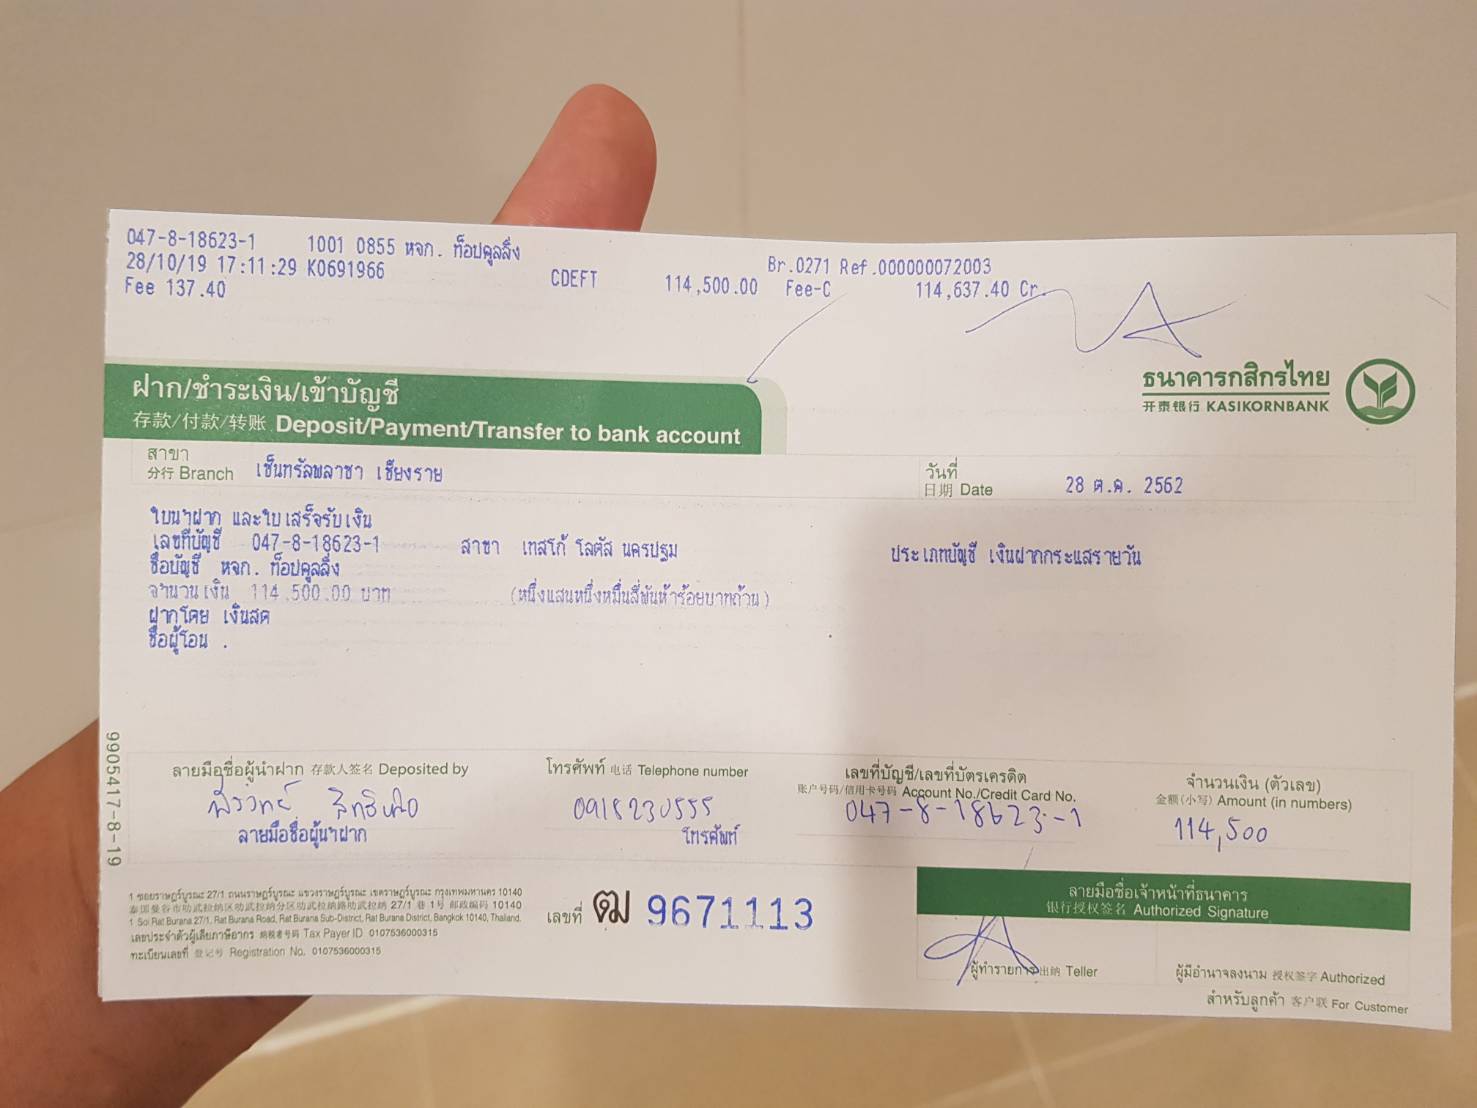 047-8-18623-1 1001 0855 หจก. ท็อปคูลลิ่ง
28/10/19 17:11:29 K0691966 CDEFT 114,500.00 Br.0271 Ref.000000072003
Fee 137.40 Fee-C 114,637.40 Cr.
ฝาก/ชำระเงิน/เข้าบัญชี
存款/付款/转账 Deposit/Payment/Transfer to bank account
ธนาคารกสิกรไทย
开泰银行 KASIKORNBANK
สาขา
分行 Branch เซ็นทรัลพลาซา เชียงราย
วันที่
日期 Date 28 ต.ค. 2562
ใบนำฝาก และใบเสร็จรับเงิน
เลขที่บัญชี 047-8-18623-1 สาขา เทสโก้ โลตัส นครปฐม ประเภทบัญชี เงินฝากกระแสรายวัน
ชื่อบัญชี หจก. ท็อปคูลลิ่ง
จำนวนเงิน 114,500.00 บาท (หนึ่งแสนหนึ่งหมื่นสี่พันห้าร้อยบาทถ้วน)
ฝากโดย เงินสด
ชื่อผู้โอน .
9905417-8-19
ลายมือชื่อผู้นำฝาก 存款人签名 Deposited by
ลายมือชื่อผู้นำฝาก
โทรศัพท์ 电话 Telephone number
0918230555
โทรศัพท์
เลขที่บัญชี/เลขที่บัตรเครดิต
账户号码/信用卡号码 Account No./Credit Card No.
047-8-18623-1
จำนวนเงิน (ตัวเลข)
金额(小写) Amount (in numbers)
114,500
1 ซอยราษฎร์บูรณะ 27/1 ถนนราษฎร์บูรณะ แขวงราษฎร์บูรณะ เขตราษฎร์บูรณะ กรุงเทพมหานคร 10140
泰国曼谷市叻武拉纳区叻武拉纳分区叻武拉纳路叻武拉纳 27/1 巷 1号 邮政编码 10140
1 Soi Rat Burana 27/1, Rat Burana Road, Rat Burana Sub-District, Rat Burana District, Bangkok 10140, Thailand.
เลขประจำตัวผู้เสียภาษีอากร 纳税者号码 Tax Payer ID 0107536000315
ทะเบียนเลขที่ 登记号 Registration No. 0107536000315
เลขที่ ฒ 9671113
ลายมือชื่อเจ้าหน้าที่ธนาคาร
银行授权签名 Authorized Signature
ผู้ทำรายการ 出纳 Teller
ผู้มีอำนาจลงนาม 授权签字 Authorized
สำหรับลูกค้า 客户联 For Customer